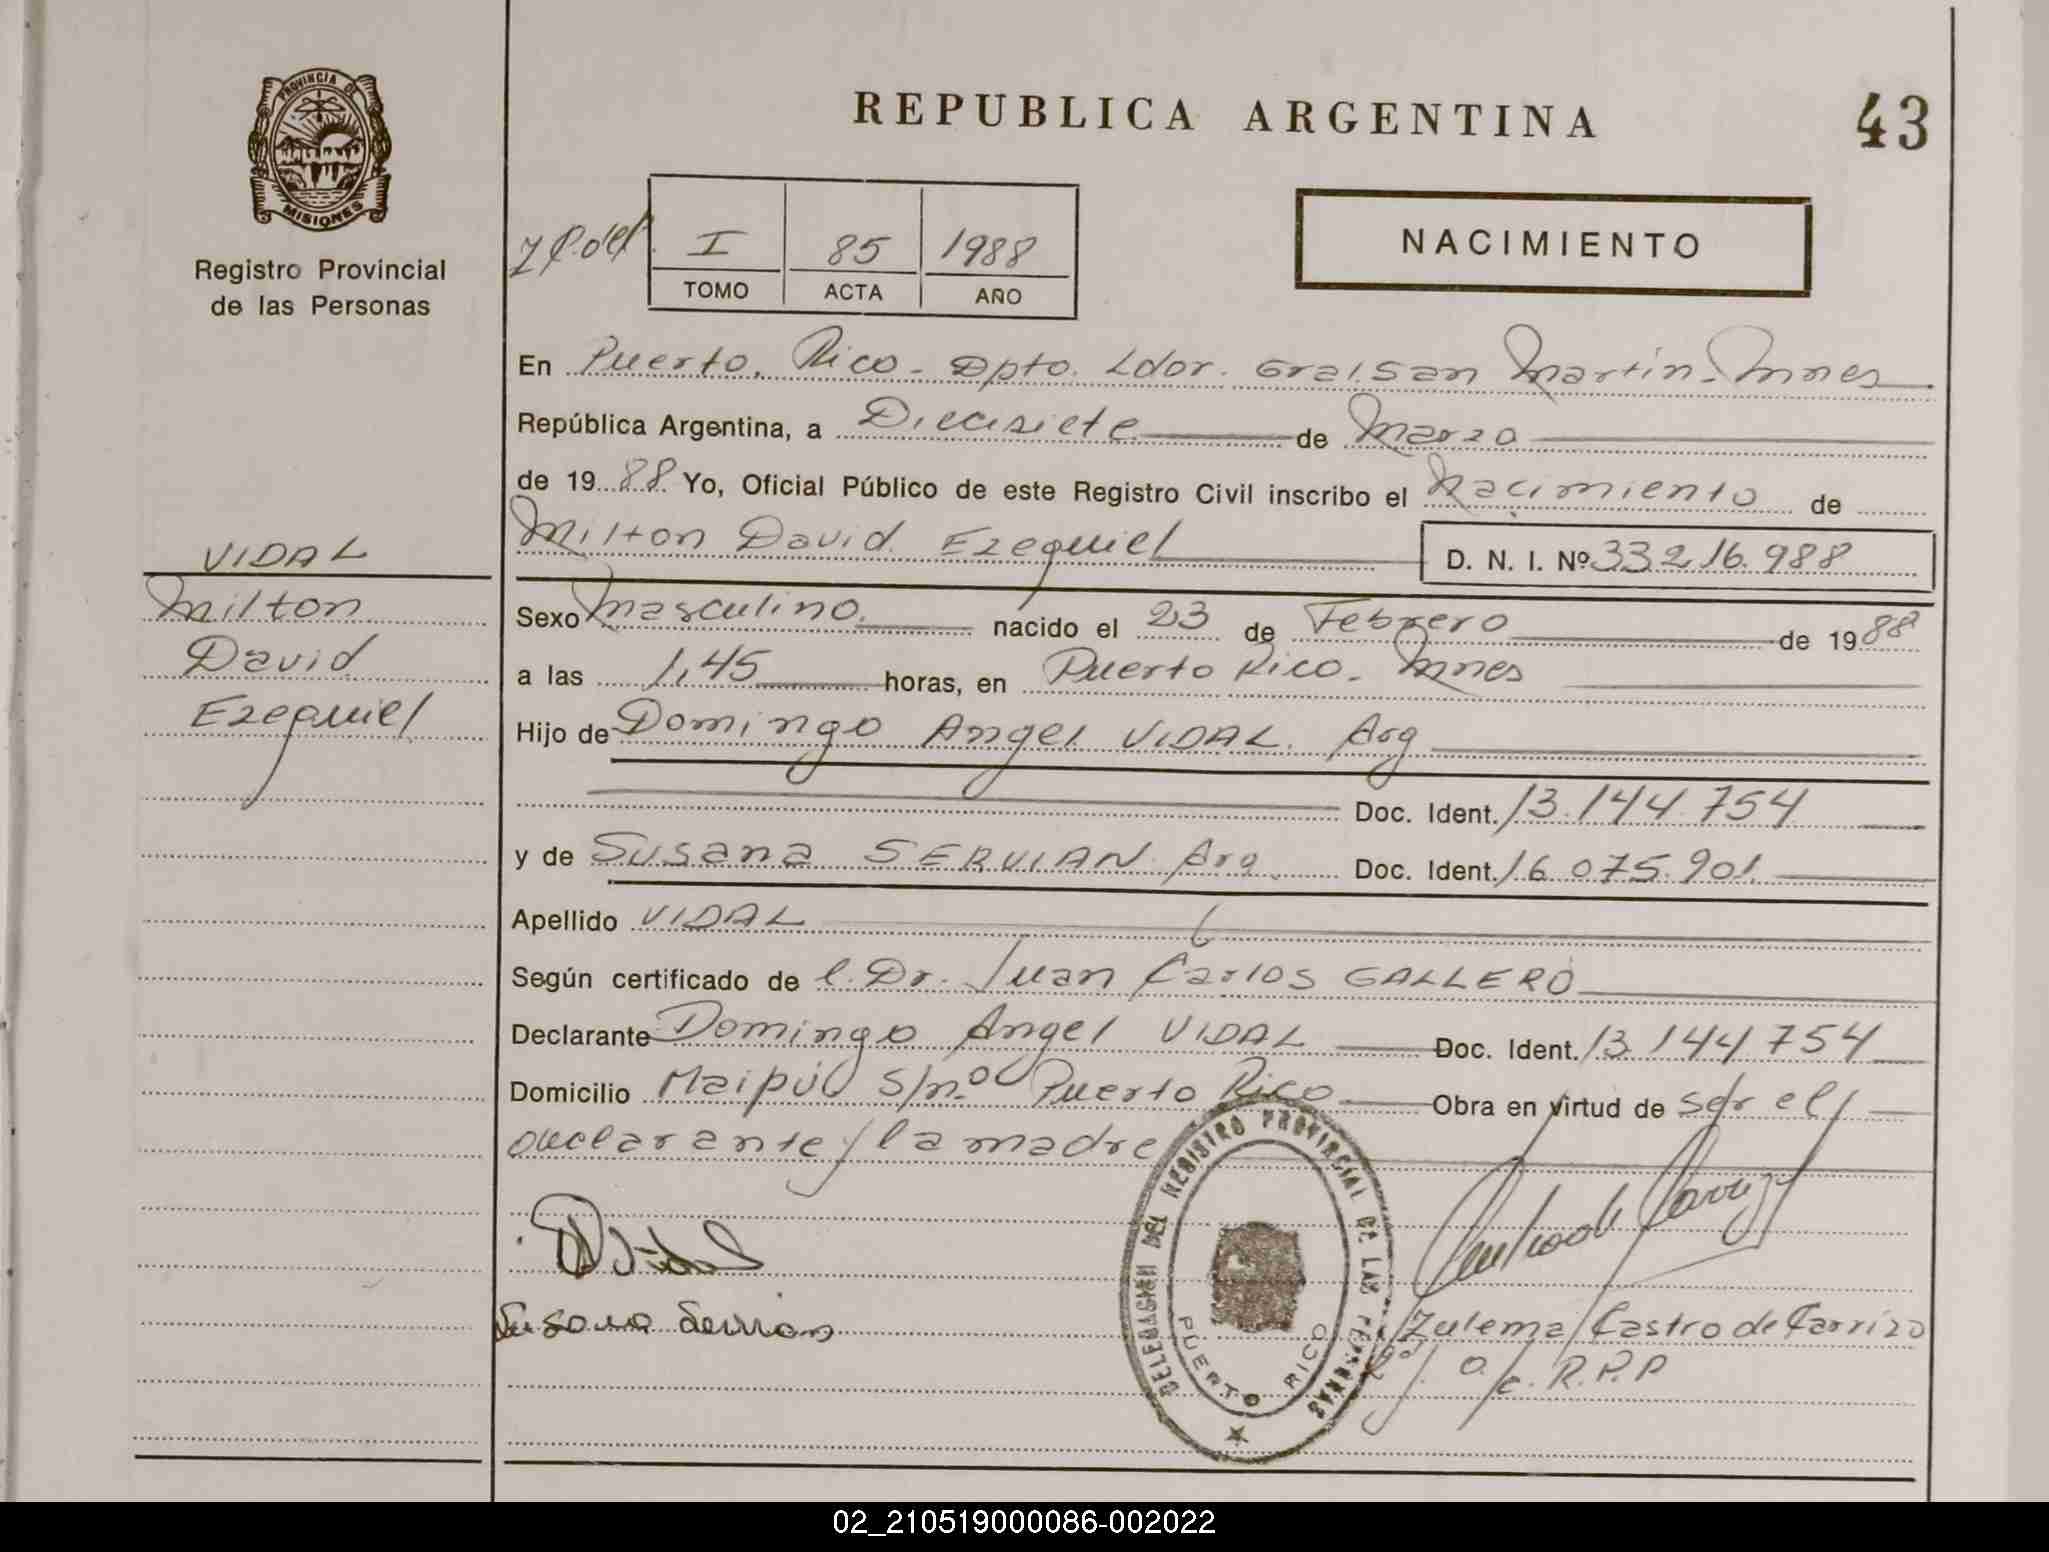 PROVINCIA DE
MISIONES
Registro Provincial
de las Personas
REPUBLICA ARGENTINA
43
I 85 1988
TOMO ACTA AÑO
NACIMIENTO
En Puerto. Rico - Dpto. Ldor. Gral. San Martín - Mnes
República Argentina, a Diecisiete de Marzo
de 19 88 Yo, Oficial Público de este Registro Civil inscribo el Nacimiento de
Milton David Ezequiel D. N. I. Nº 33.216.988
VIDAL
Milton
David
Ezequiel
Sexo Masculino nacido el 23 de Febrero de 19 88
a las 1,45 horas, en Puerto Rico - Mnes
Hijo de Domingo Angel VIDAL. Arg
Doc. Ident. 13.144.754
y de Susana SERVIAN. Arg. Doc. Ident. 16.075.901.
Apellido VIDAL
Según certificado de l. Dr. Juan Carlos GALLERO
Declarante Domingo Angel VIDAL Doc. Ident. 13.144.754
Domicilio Maipú S/nº Puerto Rico Obra en virtud de ser el
declarante y la madre
DELEGACION DEL REGISTRO PROVINCIAL DE LAS PERSONAS
PUERTO RICO
Vidal
Susana Servian
Zulema Castro de Carrizo
R.P.P
02_210519000086-002022